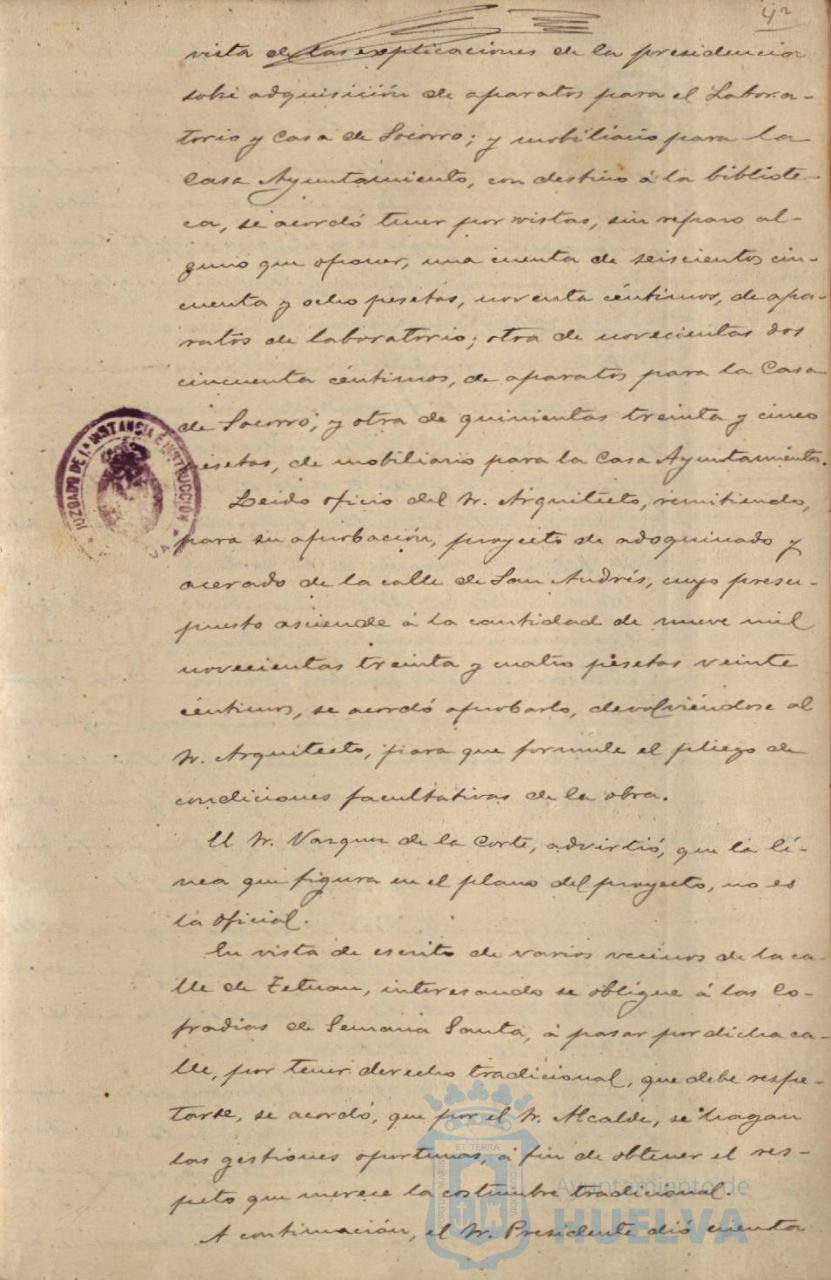 42
vista de las explicaciones de la presidencia
sobre adquisición de aparatos para el Labora-
torio y Casa de Socorro; y mobiliario para la
Casa Ayuntamiento, con destino á la bibliote-
ca, se acordó tener por vistas, sin reparo al-
guno que oponer, una cuenta de seiscientos cin-
cuenta y ocho pesetas, noventa céntimos, de apa-
ratos de laboratorio; otra de novecientas dos
cincuenta céntimos, de aparatos para la Casa
de Socorro; y otra de quinientas treinta y cinco
pesetas, de mobiliario para la Casa Ayuntamiento.
Leido oficio del Sr. Arquitecto, remitiendo,
para su aprobación, proyecto de adoquinado y
acerado de la calle de San Andrés, cuyo presu-
puesto asciende á la cantidad de nueve mil
novecientas treinta y cuatro pesetas veinte
céntimos, se acordó aprobarlo, devolviéndose al
Sr. Arquitecto, para que formule el pliego de
condiciones facultativas de la obra.
El Sr. Vazquez de la Corte, advirtió, que la lí-
nea que figura en el plano del proyecto, no es
la oficial.
En vista de escrito de varios vecinos de la ca-
lle de Tetuan, interesando se obligue á las Co-
fradias de Semana Santa, á pasar por dicha ca-
lle, por tener derecho tradicional, que debe respe-
tarse, se acordó, que por el Sr. Alcalde, se hagan
las gestiones oportunas, á fin de obtener el res-
peto que merece la costumbre tradicional.
A continuación, el Sr. Presidente dió cuenta
JUZGADO DE 1ª INSTANCIA E INSTRUCCION
ET TERRA
Ayuntamiento de
HUELVA